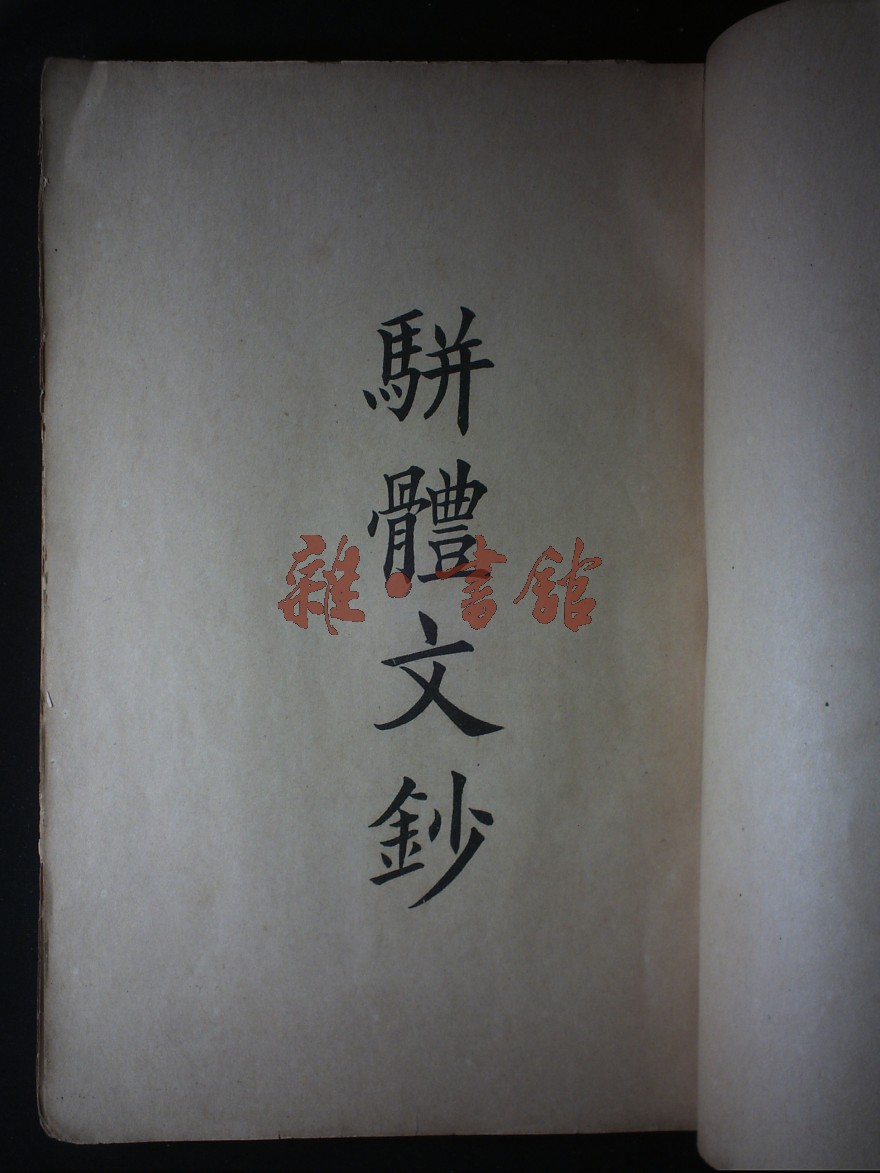 駢體文鈔
雜·書館